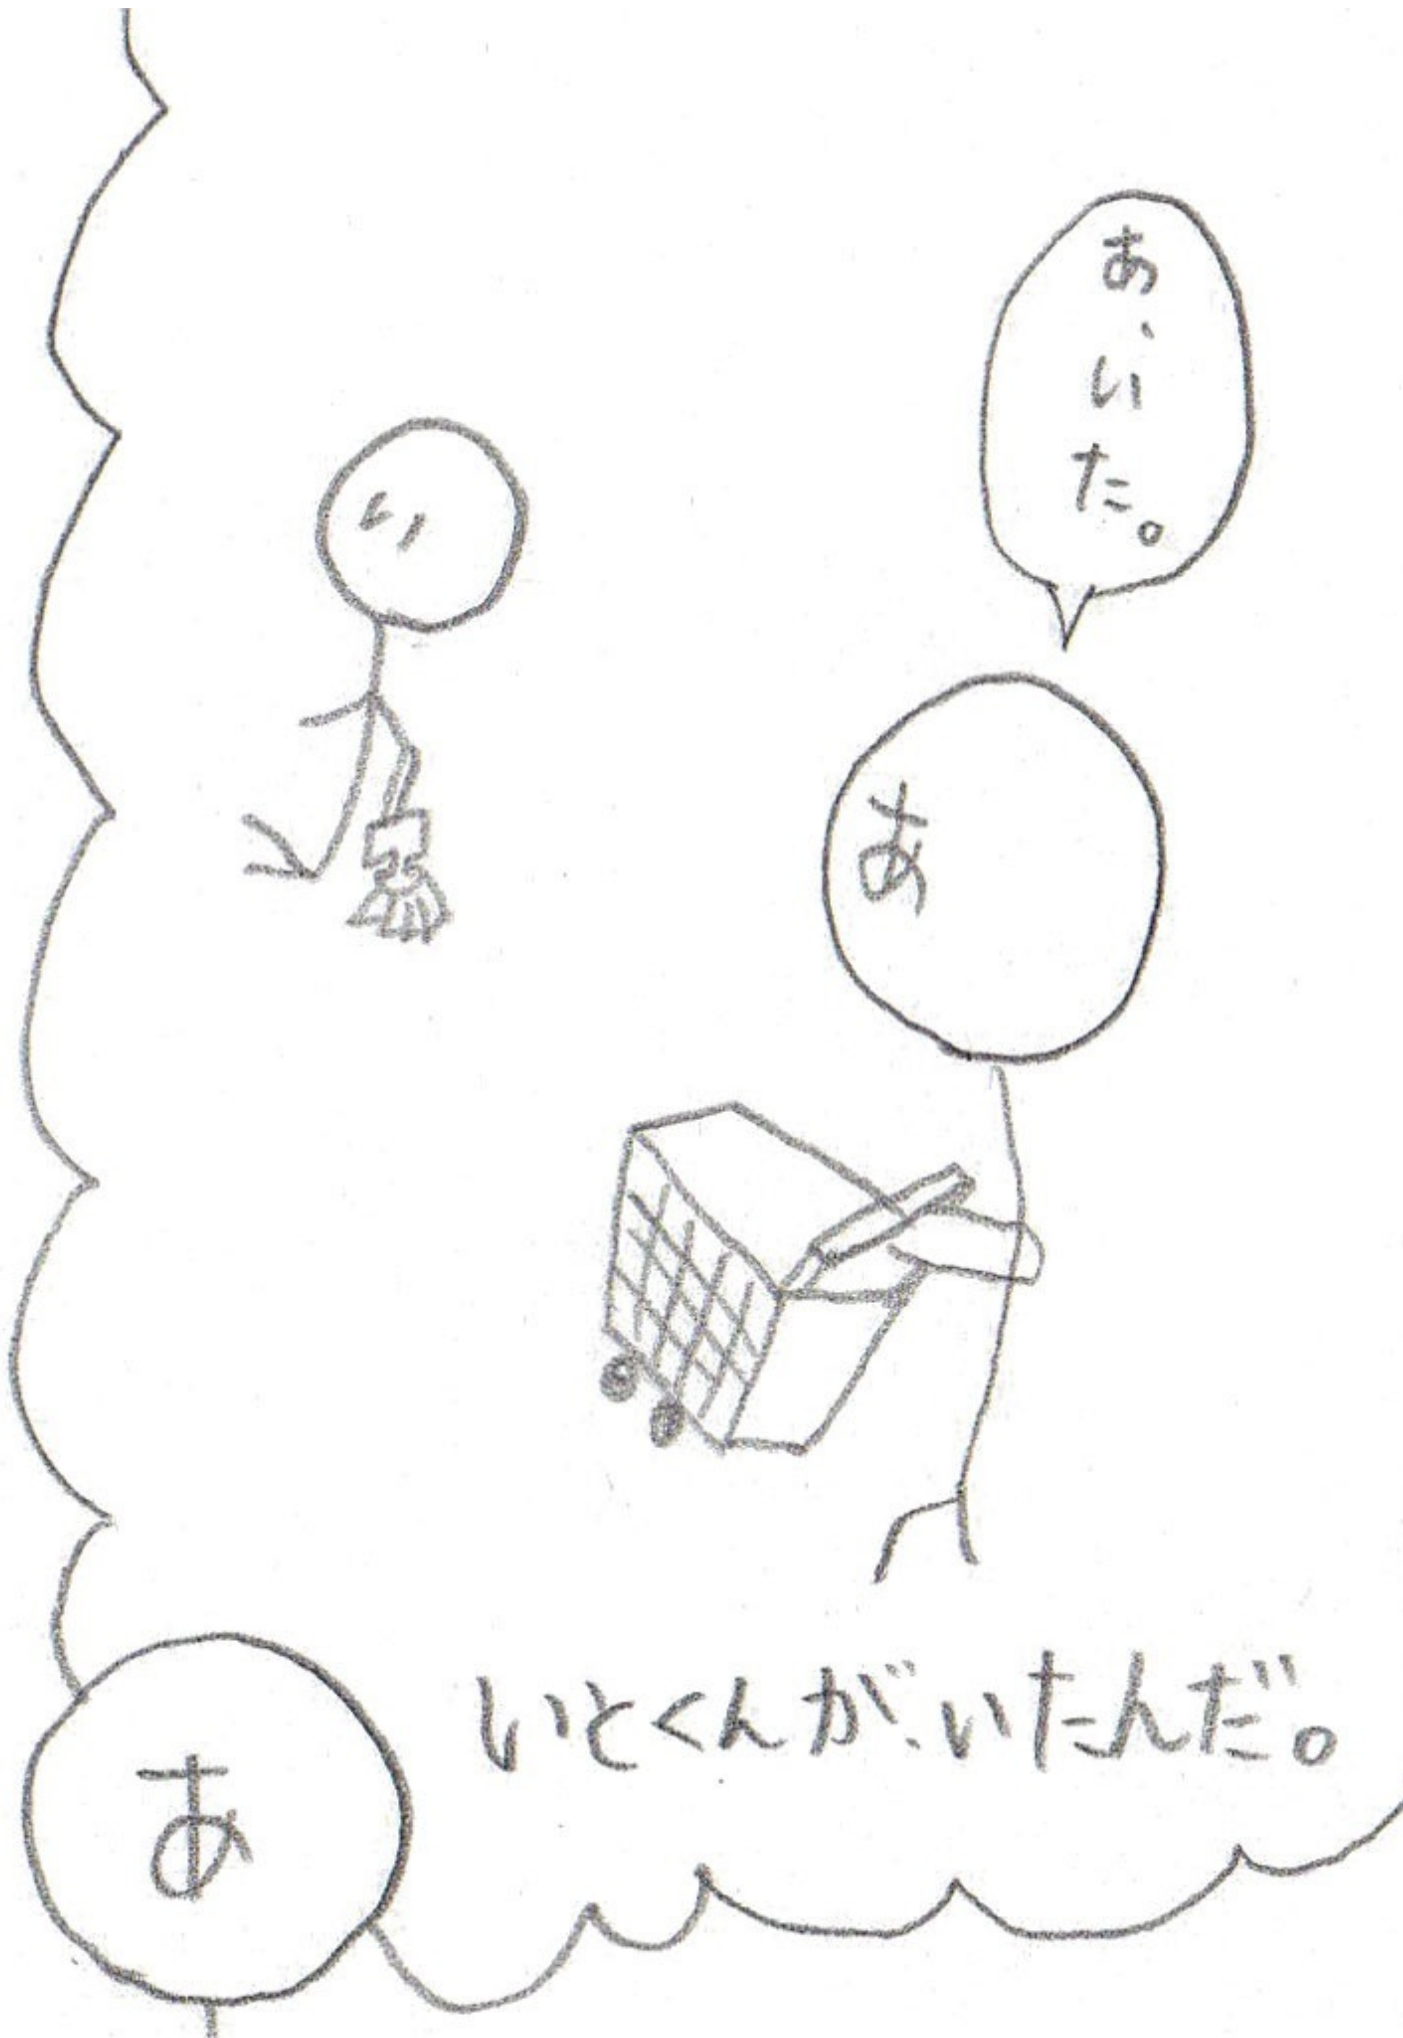 あ、いた。
い
あ
いとくんが、いたんだ。
あ